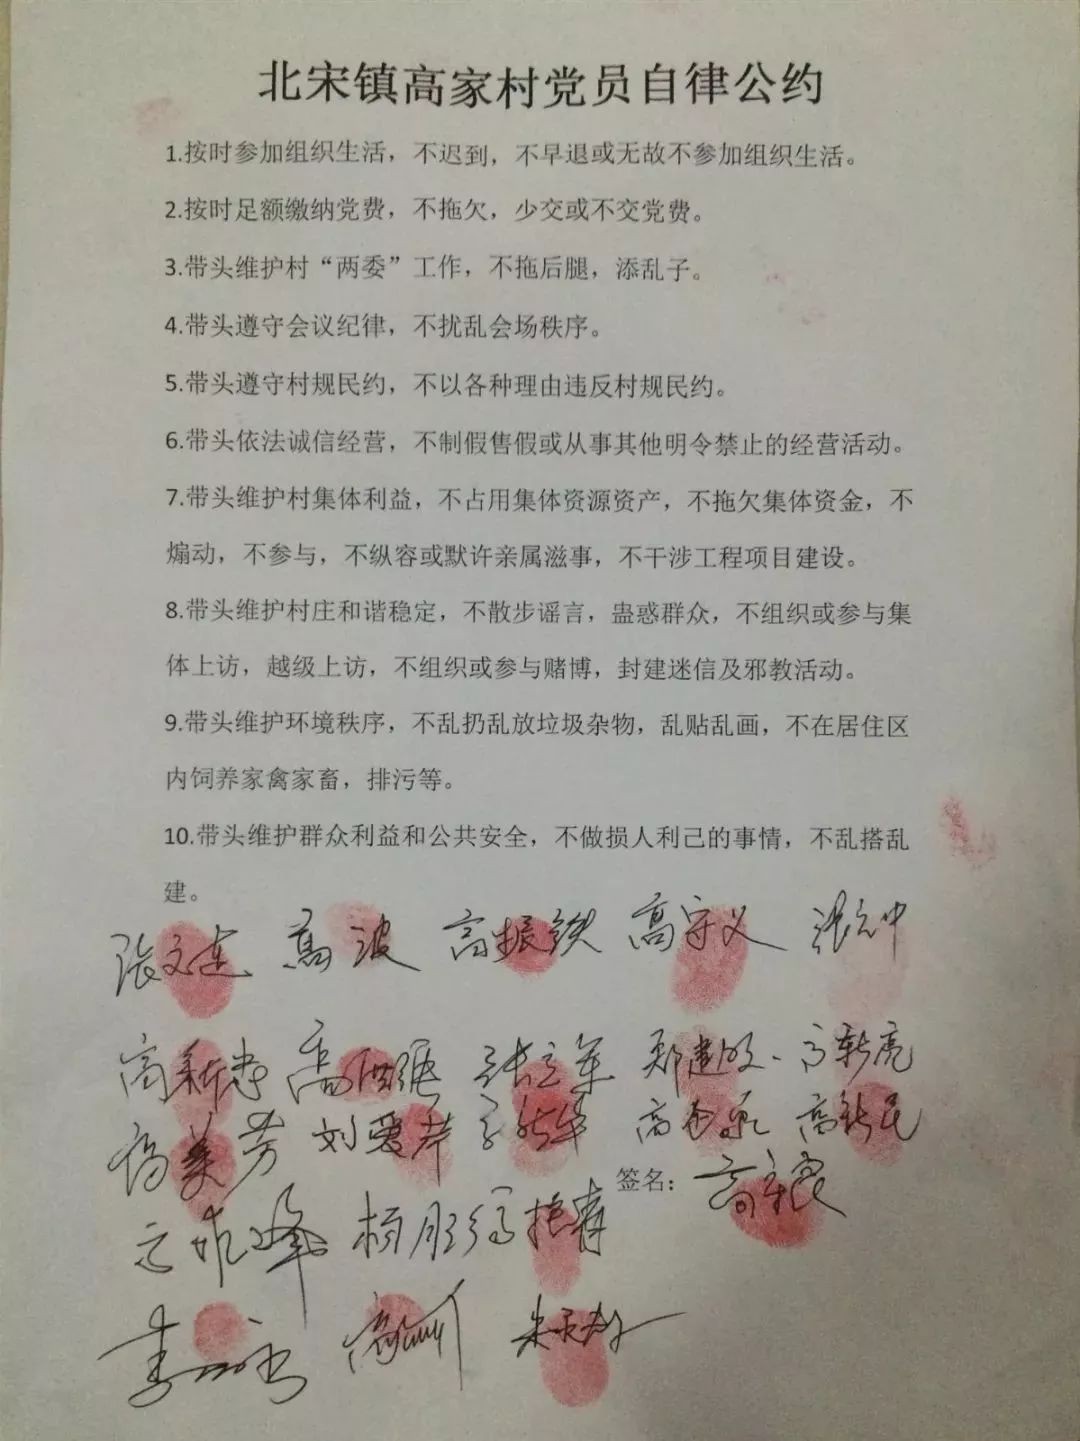 北宋镇高家村党员自律公约
1.按时参加组织生活，不迟到，不早退或无故不参加组织生活。
2.按时足额缴纳党费，不拖欠，少交或不交党费。
3.带头维护村“两委”工作，不拖后腿，添乱子。
4.带头遵守会议纪律，不扰乱会场秩序。
5.带头遵守村规民约，不以各种理由违反村规民约。
6.带头依法诚信经营，不制假售假或从事其他明令禁止的经营活动。
7.带头维护村集体利益，不占用集体资源资产，不拖欠集体资金，不
煽动，不参与，不纵容或默许亲属滋事，不干涉工程项目建设。
8.带头维护村庄和谐稳定，不散步谣言，蛊惑群众，不组织或参与集
体上访，越级上访，不组织或参与赌博，封建迷信及邪教活动。
9.带头维护环境秩序，不乱扔乱放垃圾杂物，乱贴乱画，不在居住区
内饲养家禽家畜，排污等。
10.带头维护群众利益和公共安全，不做损人利己的事情，不乱搭乱
建。
张文连 高波 高振铁 高守义
高新忠 张立军 高新亮
高美芳 刘爱芹 高新民
签名：